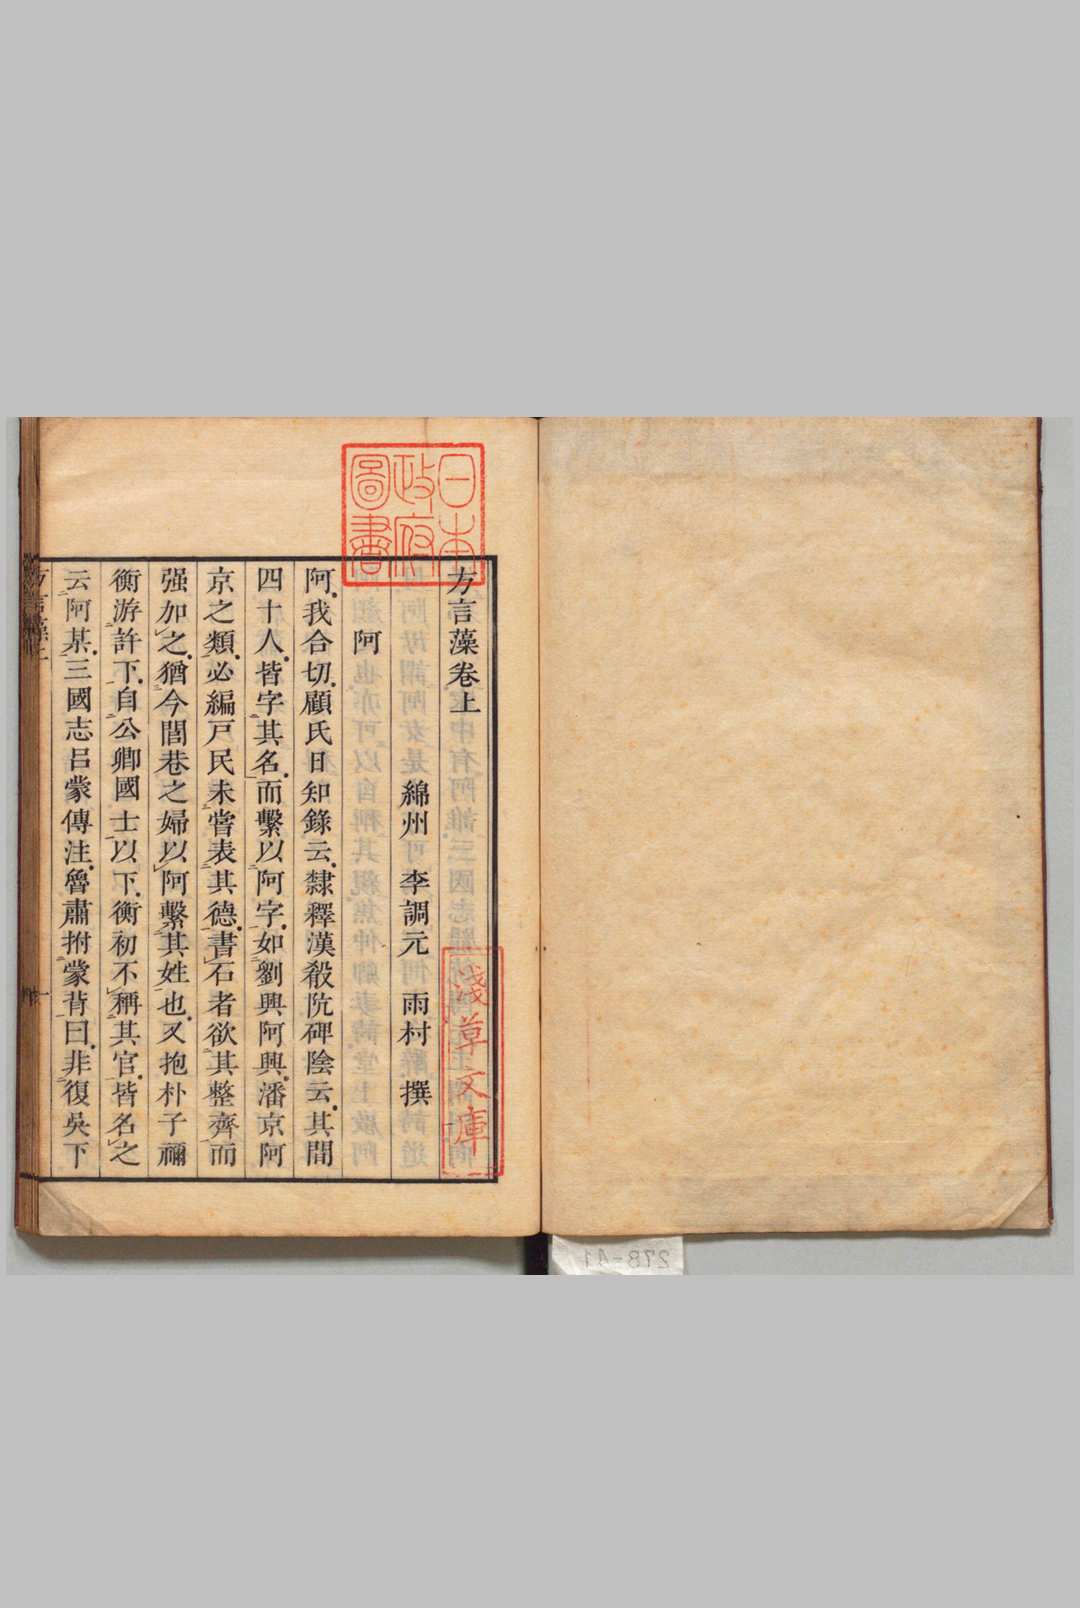 方言藻卷上
綿州 李調元 雨村 撰
阿
阿我合切顧氏日知錄云隸釋漢殽阬碑陰云其間
四十人皆字其名而繫以阿字如劉興阿興潘京阿
京之類必編戸民未嘗表其德書石者欲其整齊而
强加之猶今閭巷之婦以阿繫其姓也又抱朴子禰
衡游許下自公卿國士以下衡初不稱其官皆名之
云阿某三國志呂蒙傳注魯肅拊蒙背曰非復吳下
日本
政府
圖書
淺草文庫
278-41